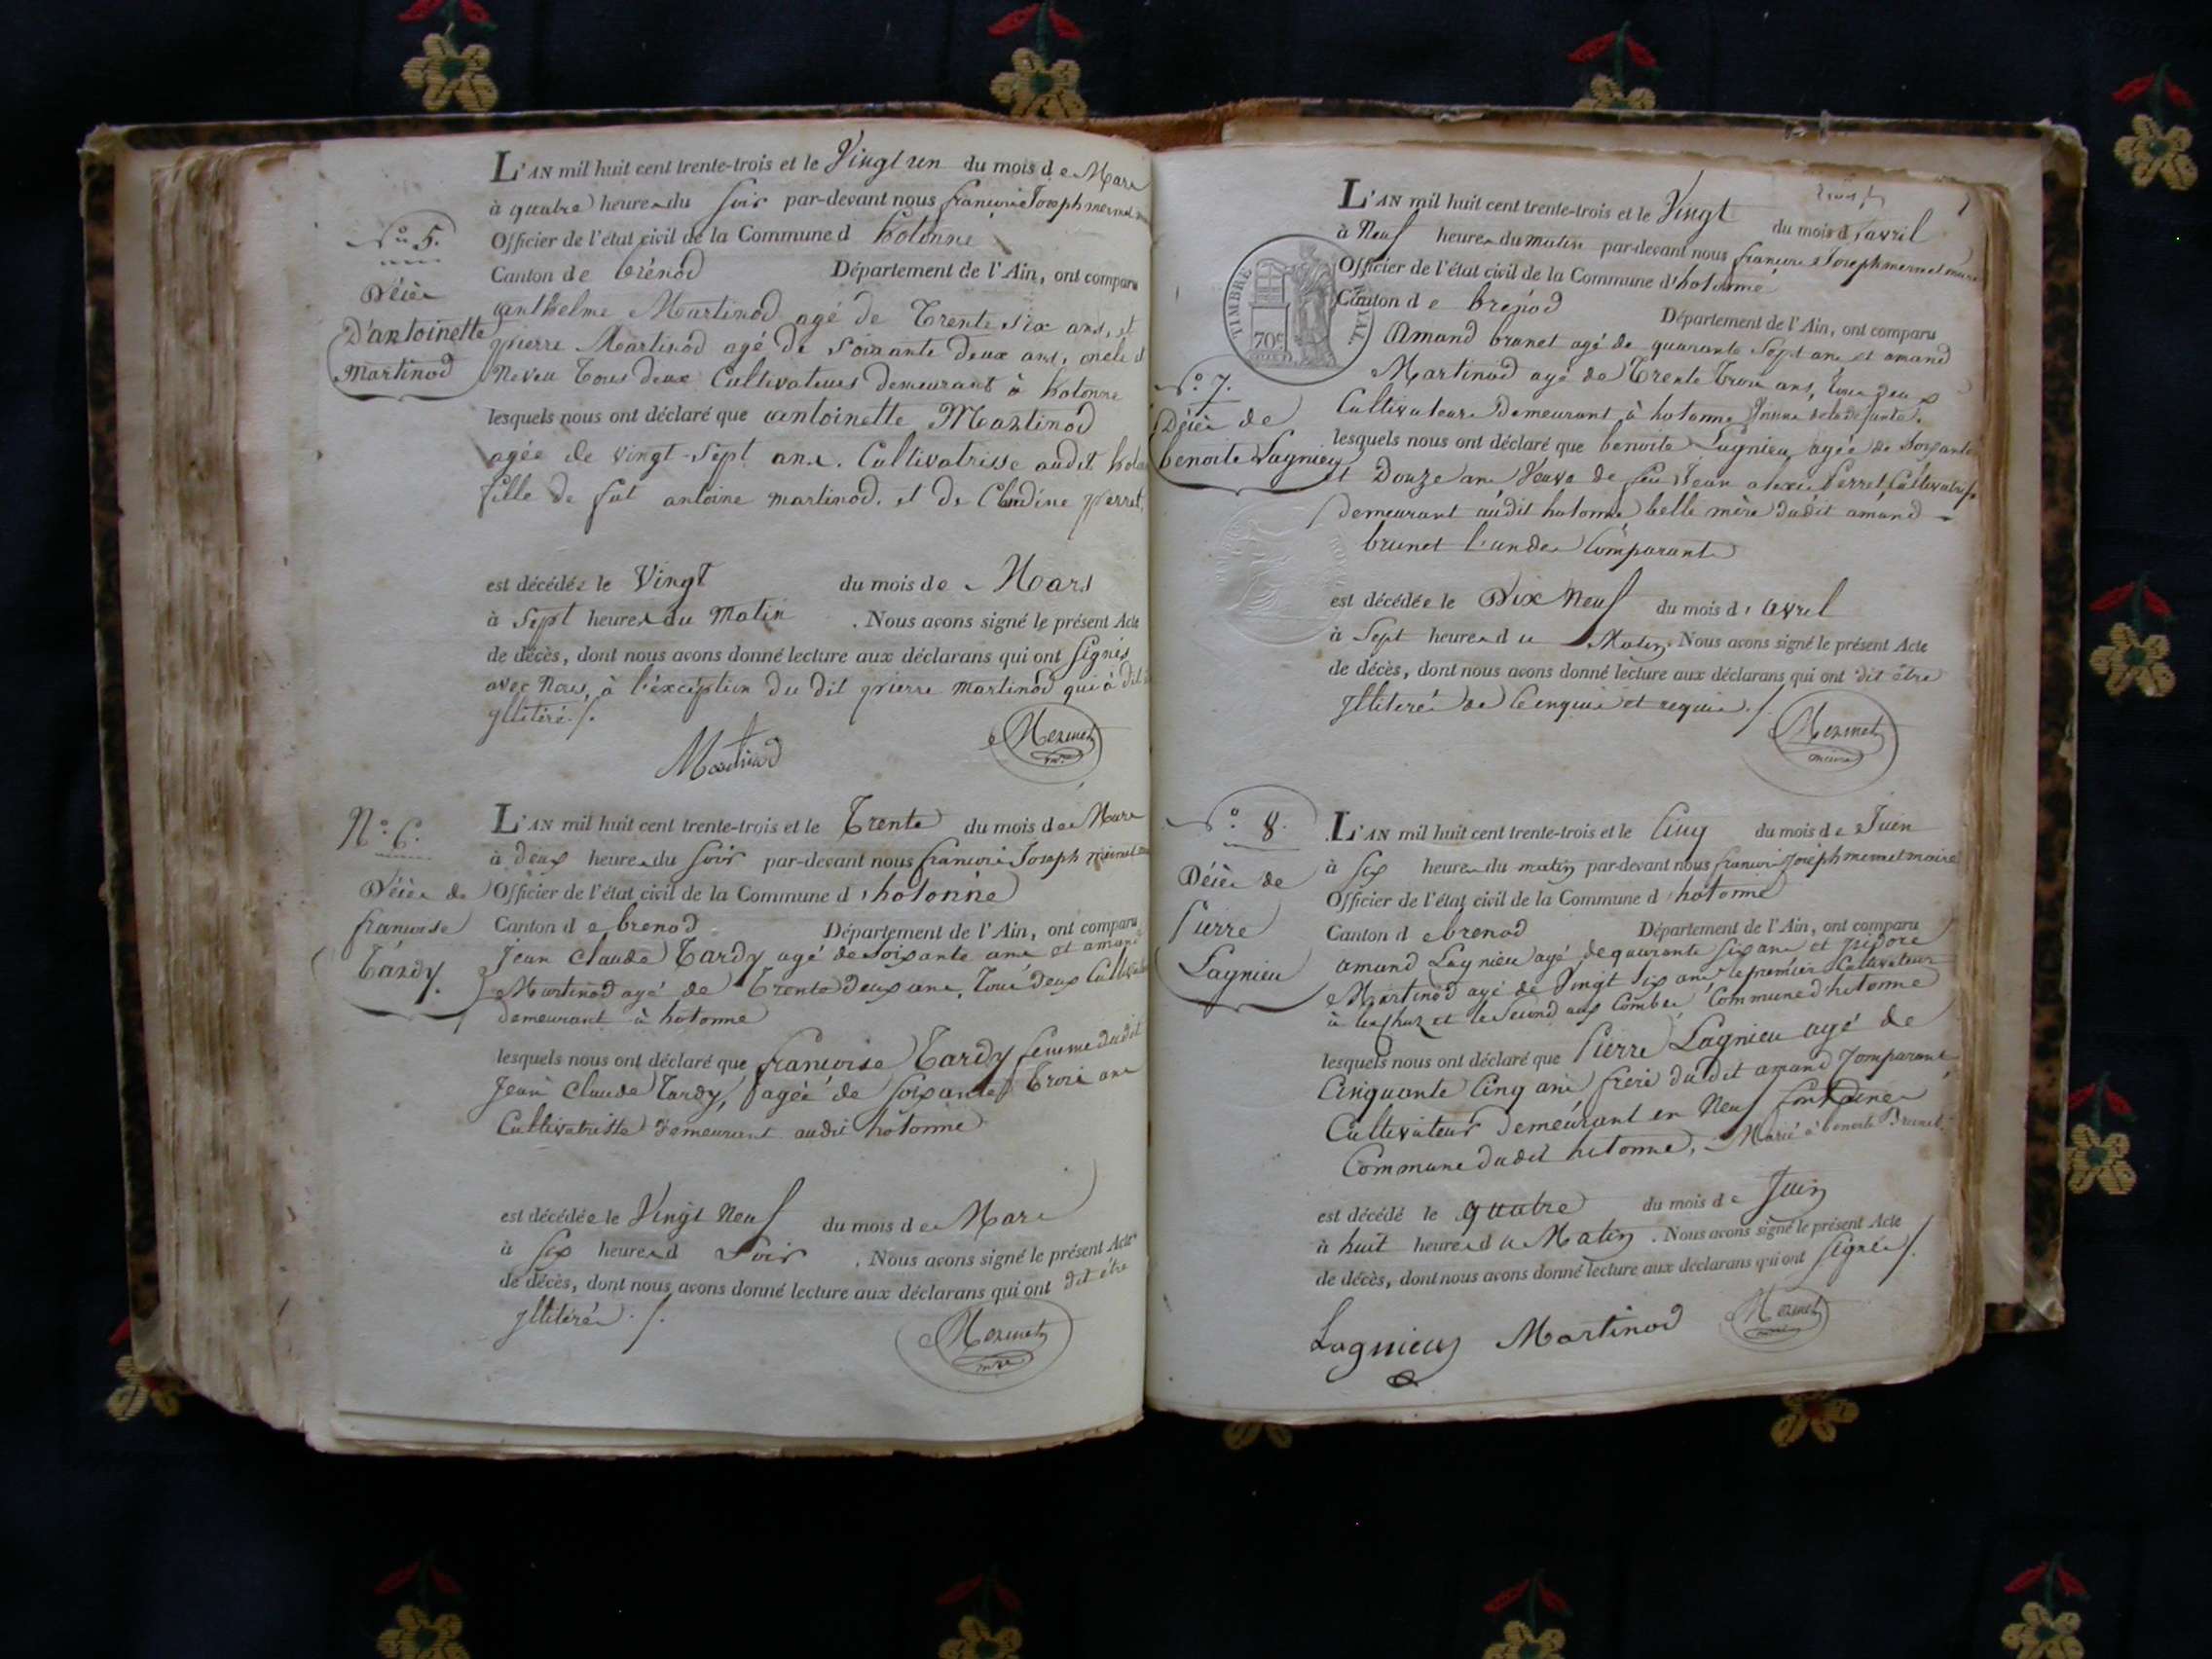 L'AN mil huit cent trente-trois et le Vingt un du mois de Mars
à quatre heures du soir par-devant nous françois Joseph mermet
Officier de l'état civil de la Commune d hotonne
Canton de brénod Département de l'Ain, ont comparu
anthelme Martinod agé de Trente six ans, et
pierre Martinod agé de soixante deux ans, oncle et
Neveu Tous deux Cultivateurs demeurants à hotonne
lesquels nous ont déclaré que antoinette Martinod
agée de vingt-sept ans. Cultivatrisse audit
fille de fut antoine martinod. et de Cludine perret
est décédée le Vingt du mois de Mars
à Sept heures du Matin . Nous avons signé le présent Acte
de décès, dont nous avons donné lecture aux déclarans qui ont signés
avec Nous, à l'éxcéption du dit pierre martinod qui à dit
yllitéré ./.
Martinod
Mermet
N° 5.
Décès
D'antoinette
Martinod
L'AN mil huit cent trente-trois et le Trente du mois de Mars
à deux heures du soir par-devant nous françois Joseph mermet
Officier de l'état civil de la Commune d'hotonne
Canton de brenod Département de l'Ain, ont comparu
Jean claude Tardy agé de soixante ans et amand
Martinod agé de Trente deux ans, Tous deux
demeurant à hotonne
lesquels nous ont déclaré que françoise Tardy femme dudit
Jean Claude Tardy, agée de soixante Trois ans
Cultivatrisse demeurant audit hotonne
est décédée le Vingt Neuf du mois de Mars
à six heures d soir . Nous avons signé le présent Acte
de décès, dont nous avons donné lecture aux déclarans qui ont dit être
yllitérés ./.
Mermet
mre
N° 6.
Décès de
françoise
Tardy.
L'AN mil huit cent trente-trois et le Vingt du mois d'avril
à Neuf heures du matin par-devant nous françois Joseph mermet maire
Officier de l'état civil de la Commune d'hotonne
Canton de brénod Département de l'Ain, ont comparu
Amand brunet agé de quarante sept ans et amand
Martinod agé de Trente Trois ans, tous deux
Cultivateurs Demeurant à hotonne
lesquels nous ont déclaré que benoite Lagnieu agée de soixante
et Douze ans Veuve de feu Jean alexis Perret, Cultivatrisse
demeurant audit hotonne belle mère dudit amand
brunet l'un des Comparants
est décédée le Dix Neuf du mois d'avril
à Sept heures du Matin. Nous avons signé le présent Acte
de décès, dont nous avons donné lecture aux déclarans qui ont dit être
yllitérés de ce enquis et requis ./.
Mermet
maire
TIMBRE ROYAL
70c
N° 7.
Décès de
benoite Lagnieu
L'AN mil huit cent trente-trois et le Cinq du mois de Juin
à six heures du matin par-devant nous françois Joseph mermet maire
Officier de l'état civil de la Commune d'hotonne
Canton de brenod Département de l'Ain, ont comparu
amand Lagnieu agé de quarante six ans et ysidore
Martinod agé de Vingt six ans, le premier Cultivateur
et le second aux Combes Commune d'hotonne
lesquels nous ont déclaré que Pierre Lagnieu agé de
Cinquante Cinq ans, frère du dit amand Comparant
Cultivateur Demeurant en Neuf fontaines
Commune dudit hotonne, Marié à benoite Brunet.
est décédé le quatre du mois de Juin
à huit heures du Matin . Nous avons signé le présent Acte
de décès, dont nous avons donné lecture aux déclarans qui ont signés ./.
Lagnieu Martinod Mermet
N° 8.
Décès de
Pierre
Lagnieu